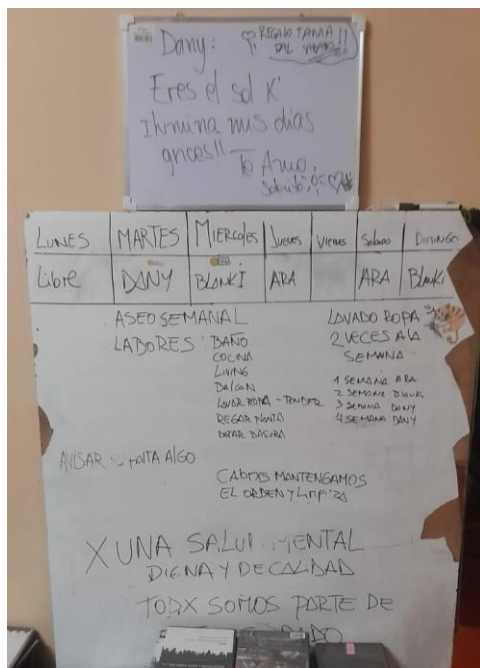 Dany:
REGALO TANIA
DEL
Eres el sol K'
Ilumina mis días
grices!! Te Amo,
LUNES MARTES MIERCOLES JUEVES Viernes Sabado DOMINGO
Libre DANY BLANKI ARA ARA BLANKi
ASEO SEMANAL
LABORES: BAÑO
COCINA
LIVING
LAVAR ROPA - TENDER
REGAR
BOTAR BASURA
LAVADO ROPA
2 VECES A LA
SEMANA
1 SEMANA ARA
2 SEMANA BLANKI
3 SEMANA DANY
4 SEMANA DANY
AVISAR FALTA ALGO
CABRXS MANTENGAMOS
EL ORDEN Y
X UNA SALUD MENTAL
DIGNA Y DE CALIDAD
TODX SOMOS PARTE DE